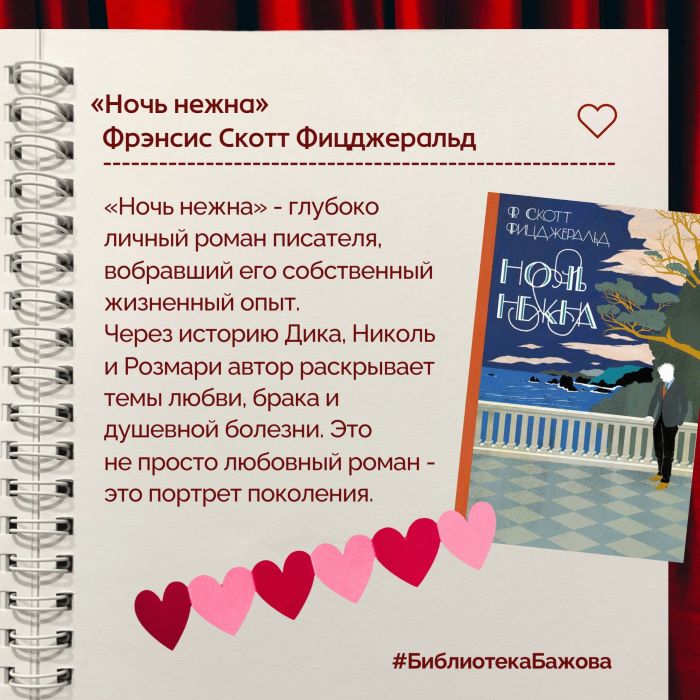 «Ночь нежна»
Фрэнсис Скотт Фицджеральд
«Ночь нежна» - глубоко
личный роман писателя,
вобравший его собственный
жизненный опыт.
Через историю Дика, Николь
и Розмари автор раскрывает
темы любви, брака и
душевной болезни. Это
не просто любовный роман -
это портрет поколения.
Ф. Скотт
Фицджеральд
Ночь
нежна
#БиблиотекаБажова